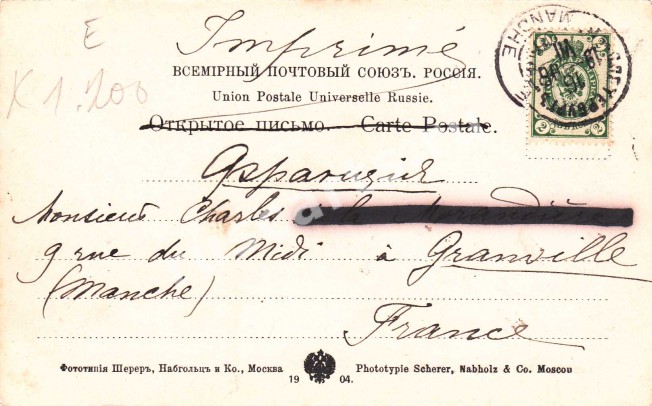 E
Imprimé
K 1.200
ВСЕМІРНЫЙ ПОЧТОВЫЙ СОЮЗЪ. РОССІЯ.
Union Postale Universelle Russie.
Открытое письмо. — Carte Postale.
Monsieur Charles de la
9 rue du Midi à Granville
(Manche)
France
Фототипія Шереръ, Набгольцъ и Ко., Москва
Phototypie Scherer, Nabholz & Co. Moscou
19 04.
MANCHE
2 2